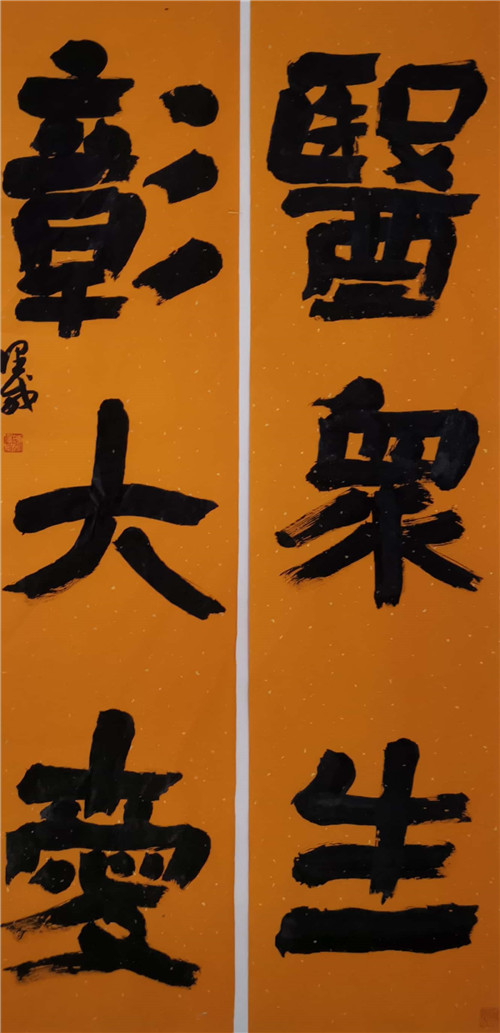 醫眾生
彰大愛